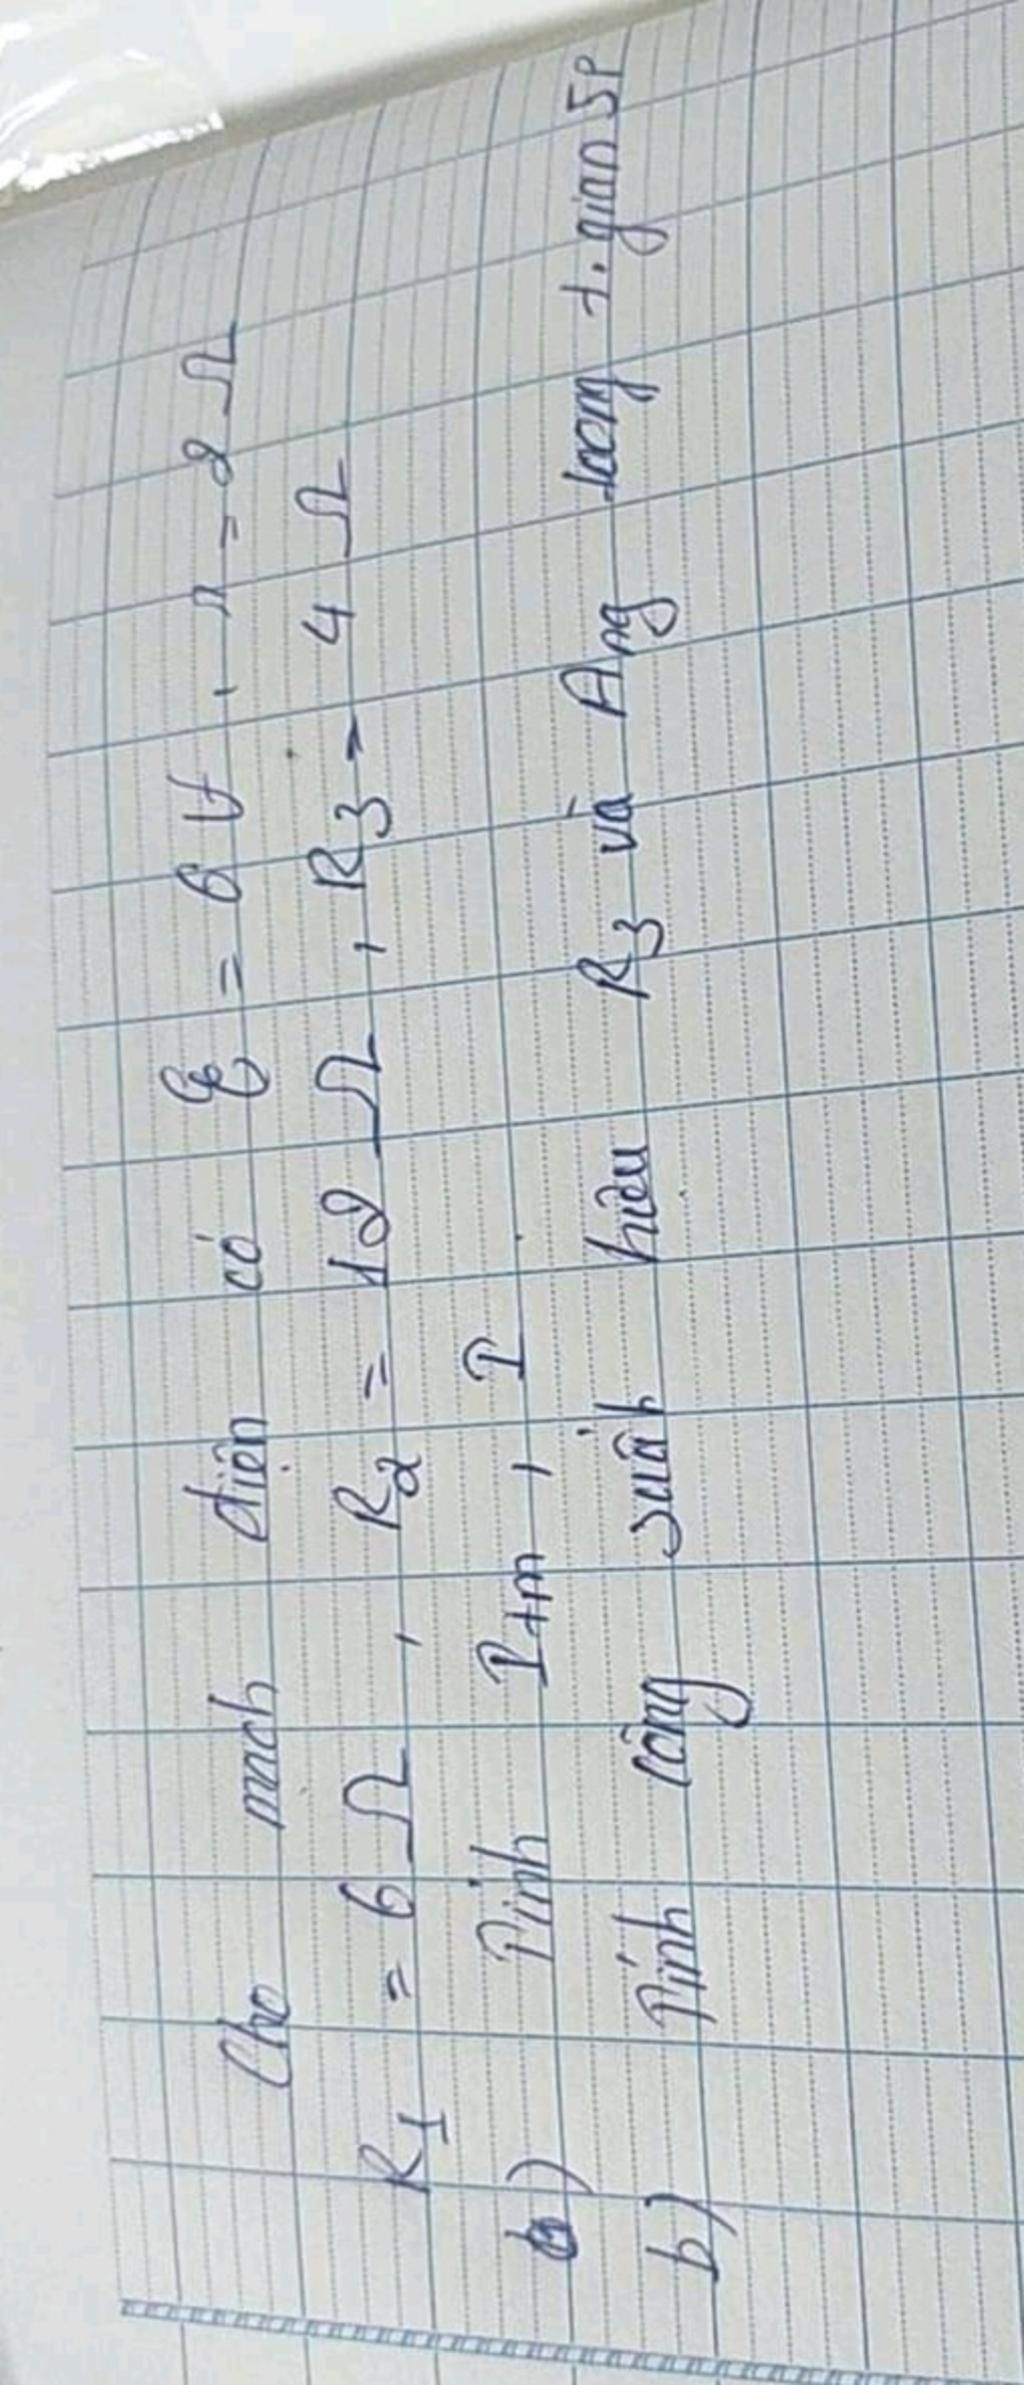 Cho mạch điện có ℰ = 6 V, r = 2 Ω
R1 = 6 Ω, R2 = 12 Ω, R3 = 4 Ω
a) Tính Rtm, I
b) Tính công suất R3 và Ang trong t. gian 5p